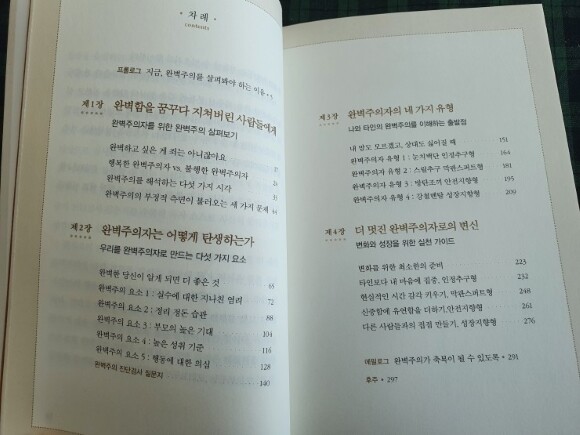 차례
contents
프롤로그 지금, 완벽주의를 살펴봐야 하는 이유 • 5
제1장 완벽함을 꿈꾸다 지쳐버린 사람들에게
완벽주의자를 위한 완벽주의 살펴보기
완벽하고 싶은 게 죄는 아니잖아요
행복한 완벽주의자 vs. 불행한 완벽주의자
완벽주의를 해석하는 다섯 가지 시각
완벽주의의 부정적 측면이 불러오는 세 가지 문제
제2장 완벽주의자는 어떻게 탄생하는가
우리를 완벽주의자로 만드는 다섯 가지 요소
완벽한 당신이 알게 되면 더 좋은 것 65
완벽주의 요소 1 : 실수에 대한 지나친 염려 72
완벽주의 요소 2 : 정리 정돈 습관 88
완벽주의 요소 3 : 부모의 높은 기대 104
완벽주의 요소 4 : 높은 성취 기준 116
완벽주의 요소 5 : 행동에 대한 의심 128
완벽주의 진단검사 질문지 140
제3장 완벽주의자의 네 가지 유형
나와 타인의 완벽주의를 이해하는 출발점
내 맘도 모르겠고, 상대도 싫어질 때 151
완벽주의자 유형 1 : 눈치백단 인정추구형 164
완벽주의자 유형 2 : 스릴추구 막판스퍼트형 181
완벽주의자 유형 3 : 방탄조끼 안전지향형 195
완벽주의자 유형 4 : 강철멘탈 성장지향형 209
제4장 더 멋진 완벽주의자로의 변신
변화와 성장을 위한 실천 가이드
변화를 위한 최소한의 준비 223
타인보다 내 마음에 집중, 인정추구형 232
현실적인 시간 감각 키우기, 막판스퍼트형 248
신중함에 유연함을 더하기, 안전지향형 261
다른 사람들과의 접점 만들기, 성장지향형 276
에필로그 완벽주의가 축복이 될 수 있도록 • 291
후주 • 297